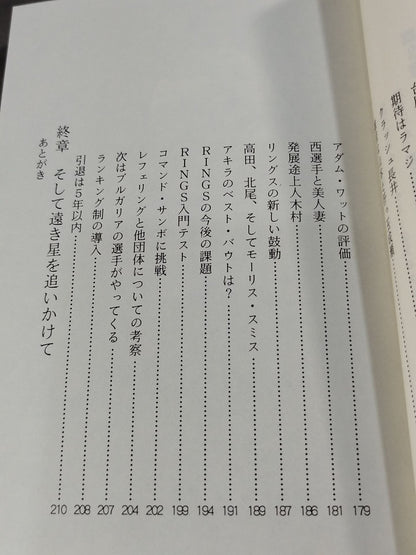 期待はラマジ
クラッシュ長井
アダム・ワットの評価 179
西選手と美人妻 181
発展途上人木村 186
リングスの新しい鼓動 187
高田、北尾、そしてモーリス・スミス 189
アキラのベスト・バウトは? 191
RINGSの今後の課題 194
RINGS入門テスト 199
コマンド・サンボに挑戦 202
レフェリングと他団体についての考察 204
次はブルガリアの選手がやってくる 207
ランキング制の導入 208
引退は5年以内 210
終章 そして遠き星を追いかけて
あとがき